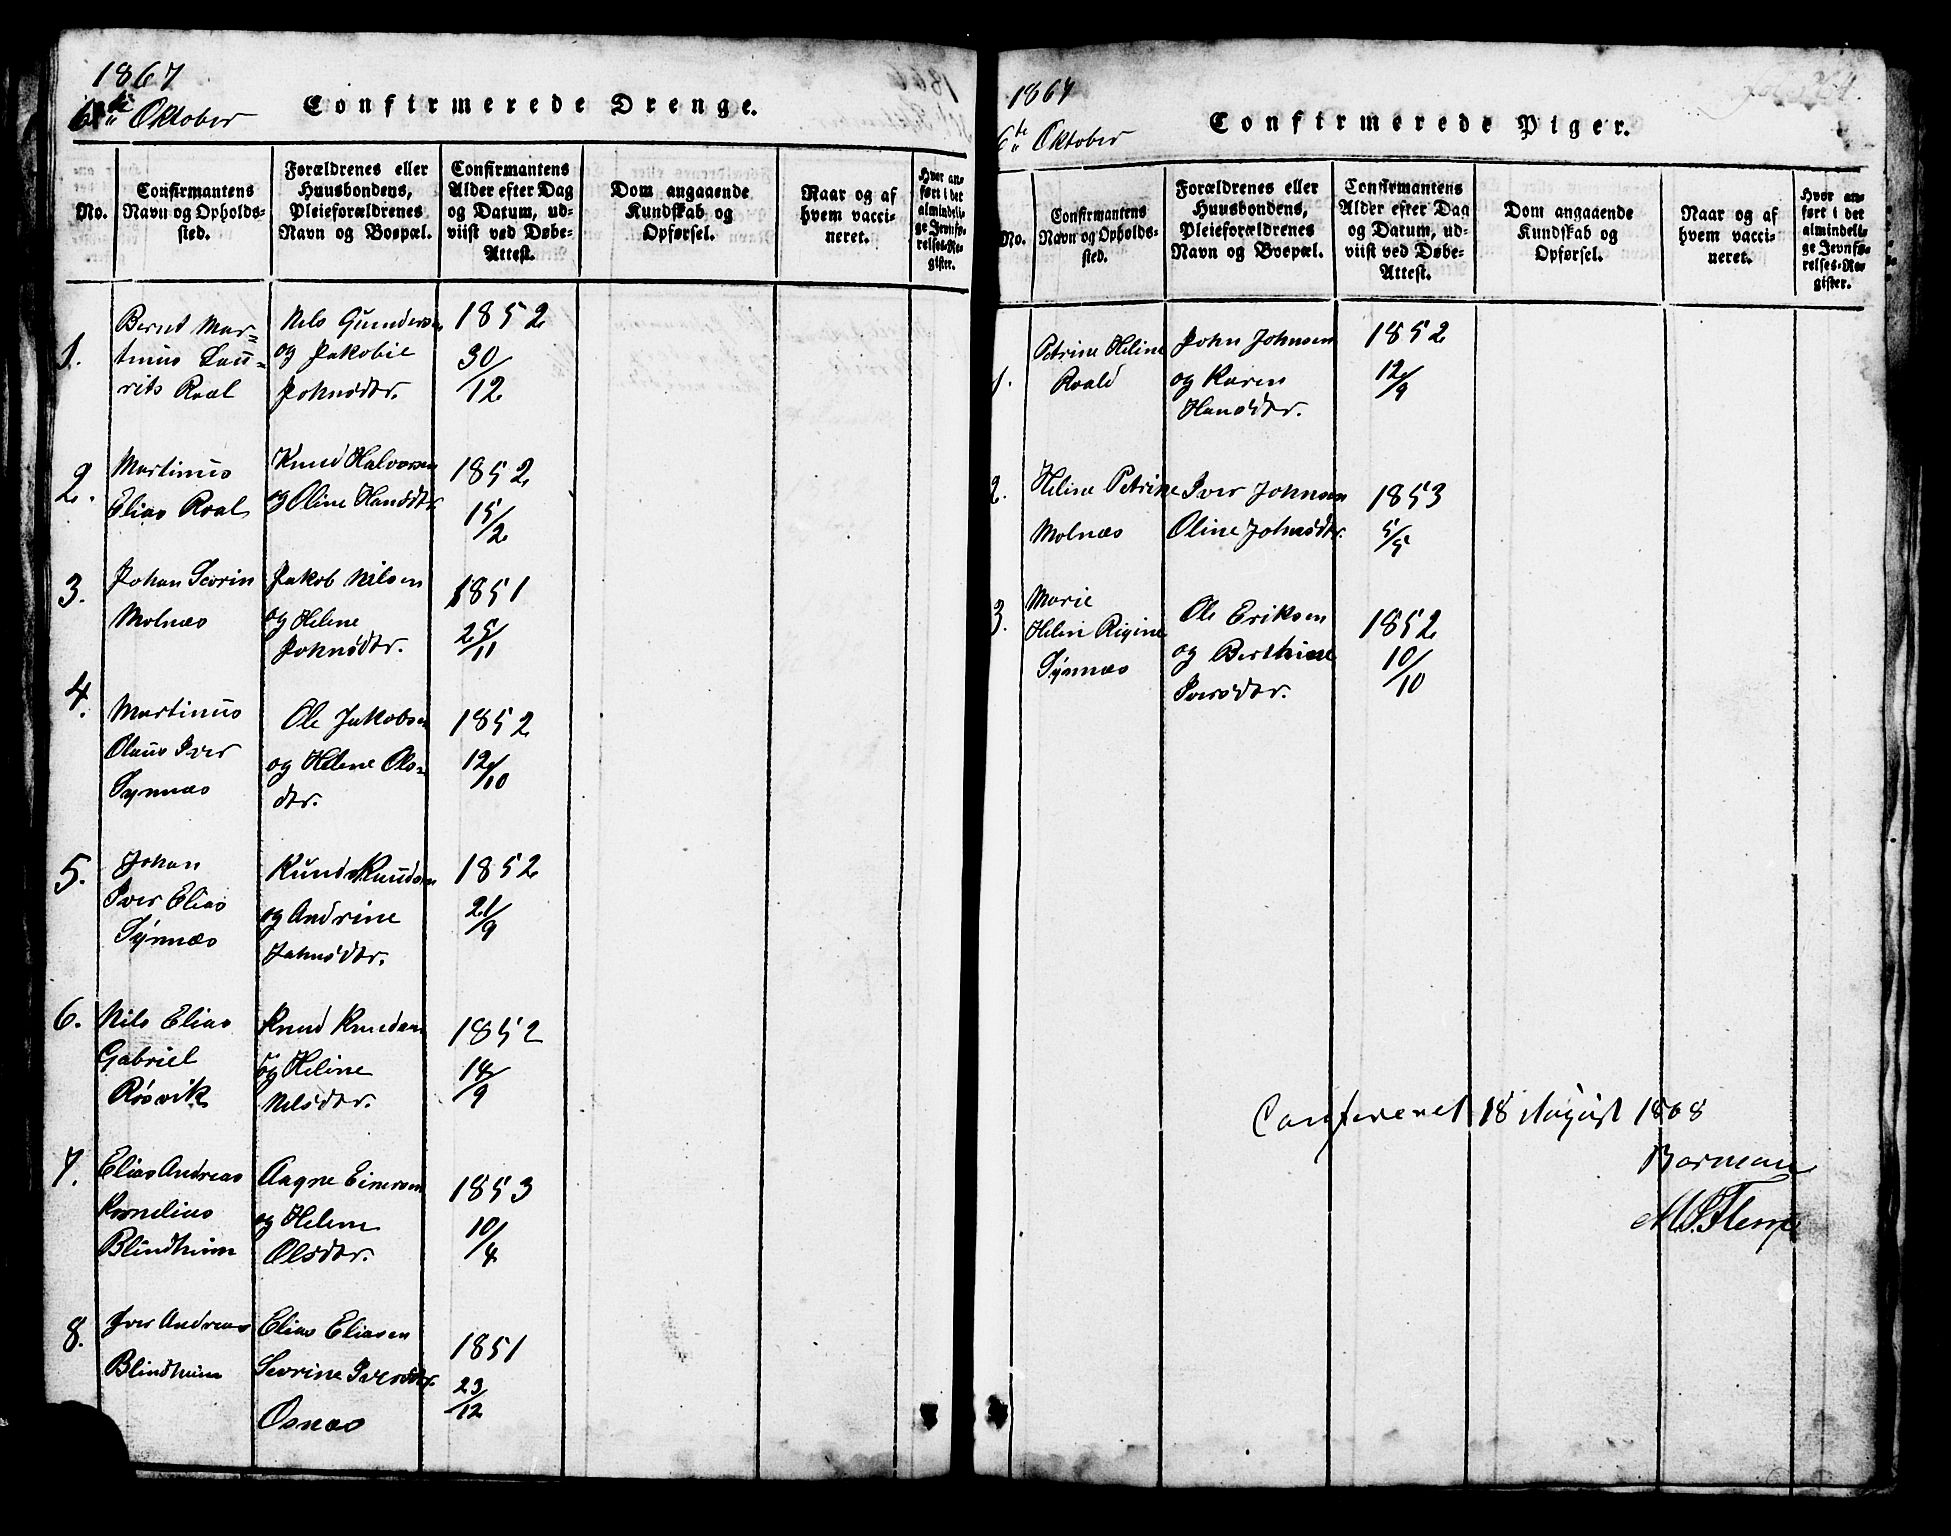 1867
6te Oktober
Confirmerede Drenge.
No.
Confirmantens
Navn og Opholds-
sted.
Forældrenes eller
Huusbondens,
Pleieforældrenes
Navn og Boepæl.
Confirmantens
Alder efter Dag
og Datum, ud-
viist ved Døbe-
Attest.
Dom angaaende
Kundskab og
Opførsel.
Naar og af
hvem vacci-
neret.
Hvor an-
ført i det
almindeli-
ge Jevnfø-
relses-Re-
gister.
1.
Bernt Mar-
tinus Lau-
rits Roal
Nils Gunderse
og Jakobie
Johnsdtr.
1852
30/12
2.
Martinus
Elias Roal
Knud Halvorsen
og Oline Hansdtr.
1852
15/2
3.
Johan Sevrin
Molnæs
Jakob Nilsen
og Helene
Johnsdtr.
1851
25/11
4.
Martinus
Olaus Iver
Synnæs
Ole Jakobsen
og Helene Ols-
dtr.
1852
12/10
5.
Johan
Iver Elias
Synnæs
Knud Knudsen
og Andrine
Johnsdtr.
1852
21/9
6.
Nils Elias
Gabriel
Røsvik
Knud Knudsen
og Heline
Nilsdtr.
1852
14/9
7.
Elias Andreas
Kornelius
Blindheim
Aagne Einersen
og Helene
Olsdtr.
1853
10/4
8.
Iver Andreas
Blindheim
Elias Eliasen
Sevrine Iversdtr.
Osnæs
1851
23/12
1867
6te Oktober
Confirmerede Piger.
No.
Confirmantens
Navn og Opholds-
sted.
Forældrenes eller
Huusbondens,
Pleieforældrenes
Navn og Boepæl.
Confirmantens
Alder efter Dag
og Datum, ud-
viist ved Døbe-
Attest.
Dom angaaende
Kundskab og
Opførsel.
Naar og af
hvem vacci-
neret.
Hvor an-
ført i det
almindeli-
ge Jevnfø-
relses-Re-
gister.
1.
Petrine Heline
Roald
John Johnsen
og Karen
Hansdtr.
1852
12/9
2.
Heline Petrine
Molnæs
Iver Johnsen
Oline Johnsdtr.
1853
5/5
3.
Marie
Helen Rigine
Synnæs
Ole Eriksen
og Berthine
Iversdtr.
1852
10/10
Confereret 18 August 1868
Barman